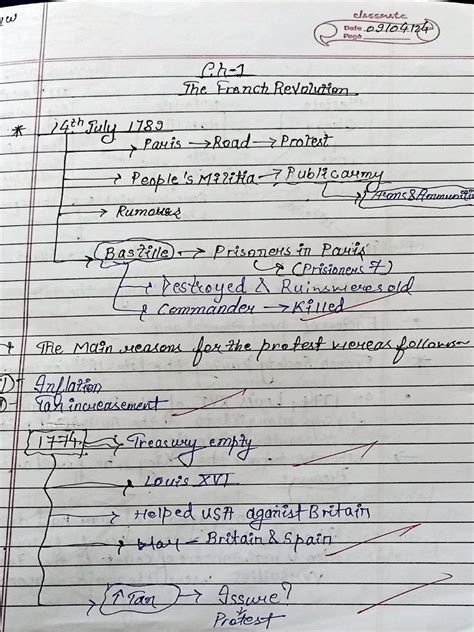 classmate
Date 09/04/24
Page
Ch-1
The French Revolution
* 14th July 1789
→ Paris → Road → Protest
→ People's Militia → Public army
→ Arms & Ammuniti
→ Rumours
→ Bastille → Prisoners in Paris
→ (Prisioners 7)
→ Destroyed & Ruins were sold
→ Commander → Killed
* The Main reasons for the protest were as follows-
Inflation
Tax increasement
1774 → Treasury empty
→ Louis XVI
→ Helped USA aganist Britain
→ War - Britain & Spain
→ ↑ Tax → Issure?
Protest